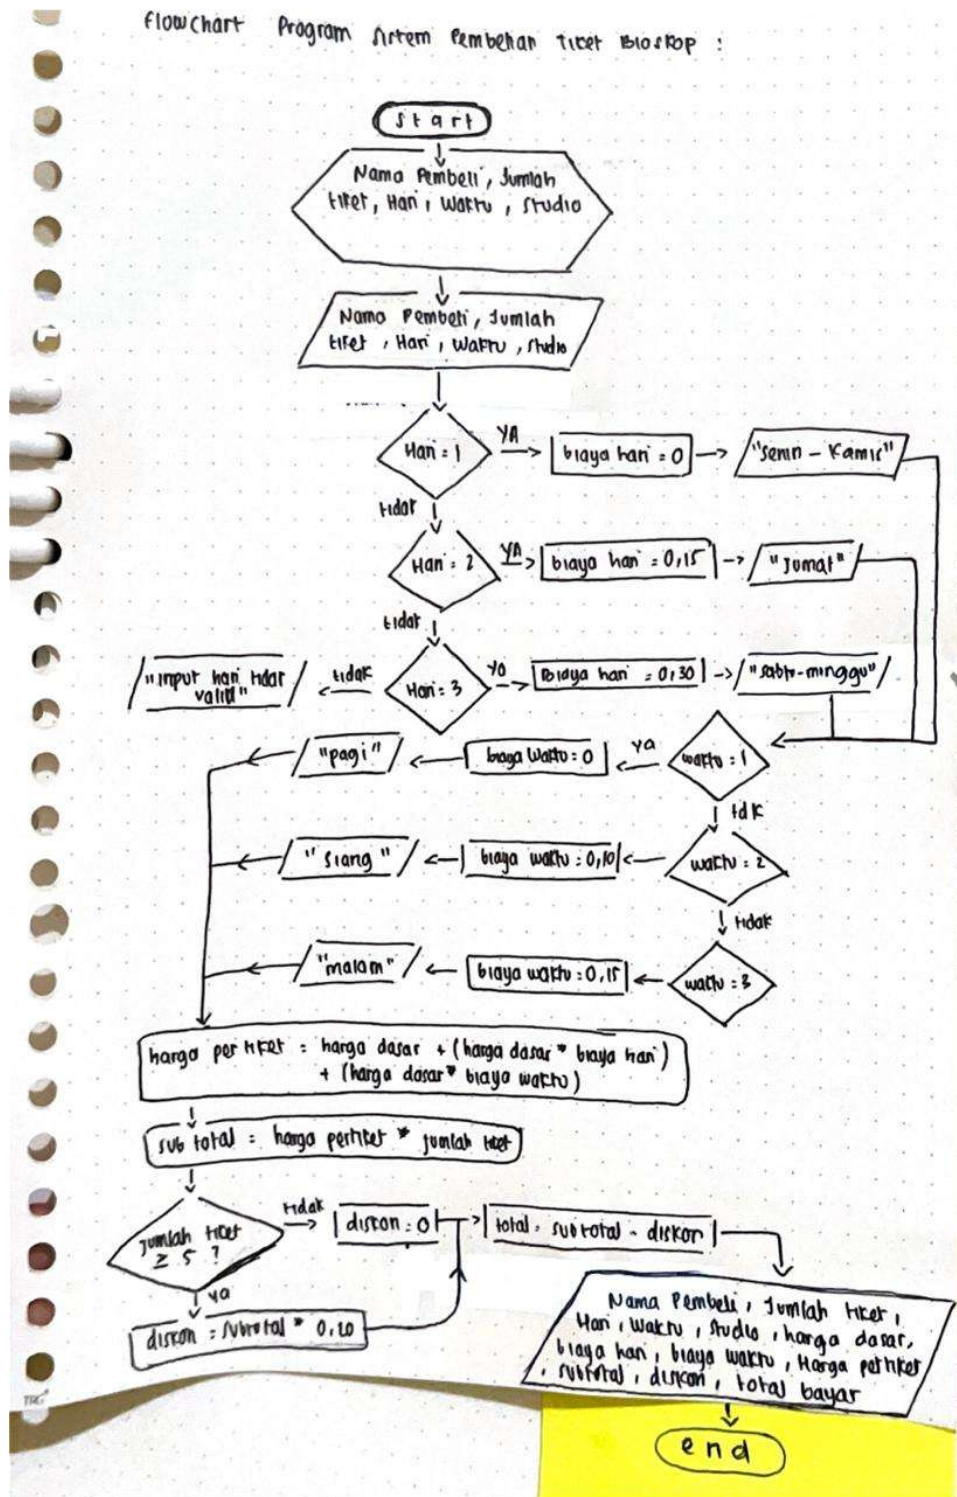 Flowchart Program Sistem Pembelian Tiket Bioskop :
Start
Nama Pembeli, Jumlah
tiket, Hari, Waktu, Studio
Nama Pembeli, Jumlah
tiket, Hari, Waktu, Studio
Hari = 1
YA
biaya hari = 0
"Senin - Kamis"
tidak
Hari = 2
YA
biaya hari = 0,15
"Jumat"
tidak
"input hari tidak
valid"
tidak
Hari = 3
ya
Biaya hari = 0,30
"sabtu-minggu"
"pagi"
biaya waktu = 0
ya
waktu = 1
tdk
"siang"
biaya waktu = 0,10
waktu = 2
tidak
"malam"
biaya waktu = 0,15
waktu = 3
harga per tiket = harga dasar + (harga dasar * biaya hari)
+ (harga dasar * biaya waktu)
sub total = harga pertiket * jumlah tiket
jumlah tiket
≥ 5 ?
tidak
diskon = 0
total = subtotal - diskon
ya
diskon = subtotal * 0,20
Nama Pembeli, Jumlah tiket,
Hari, Waktu, Studio, harga dasar,
biaya hari, biaya waktu, Harga pertiket
, subtotal, diskon, total bayar
end